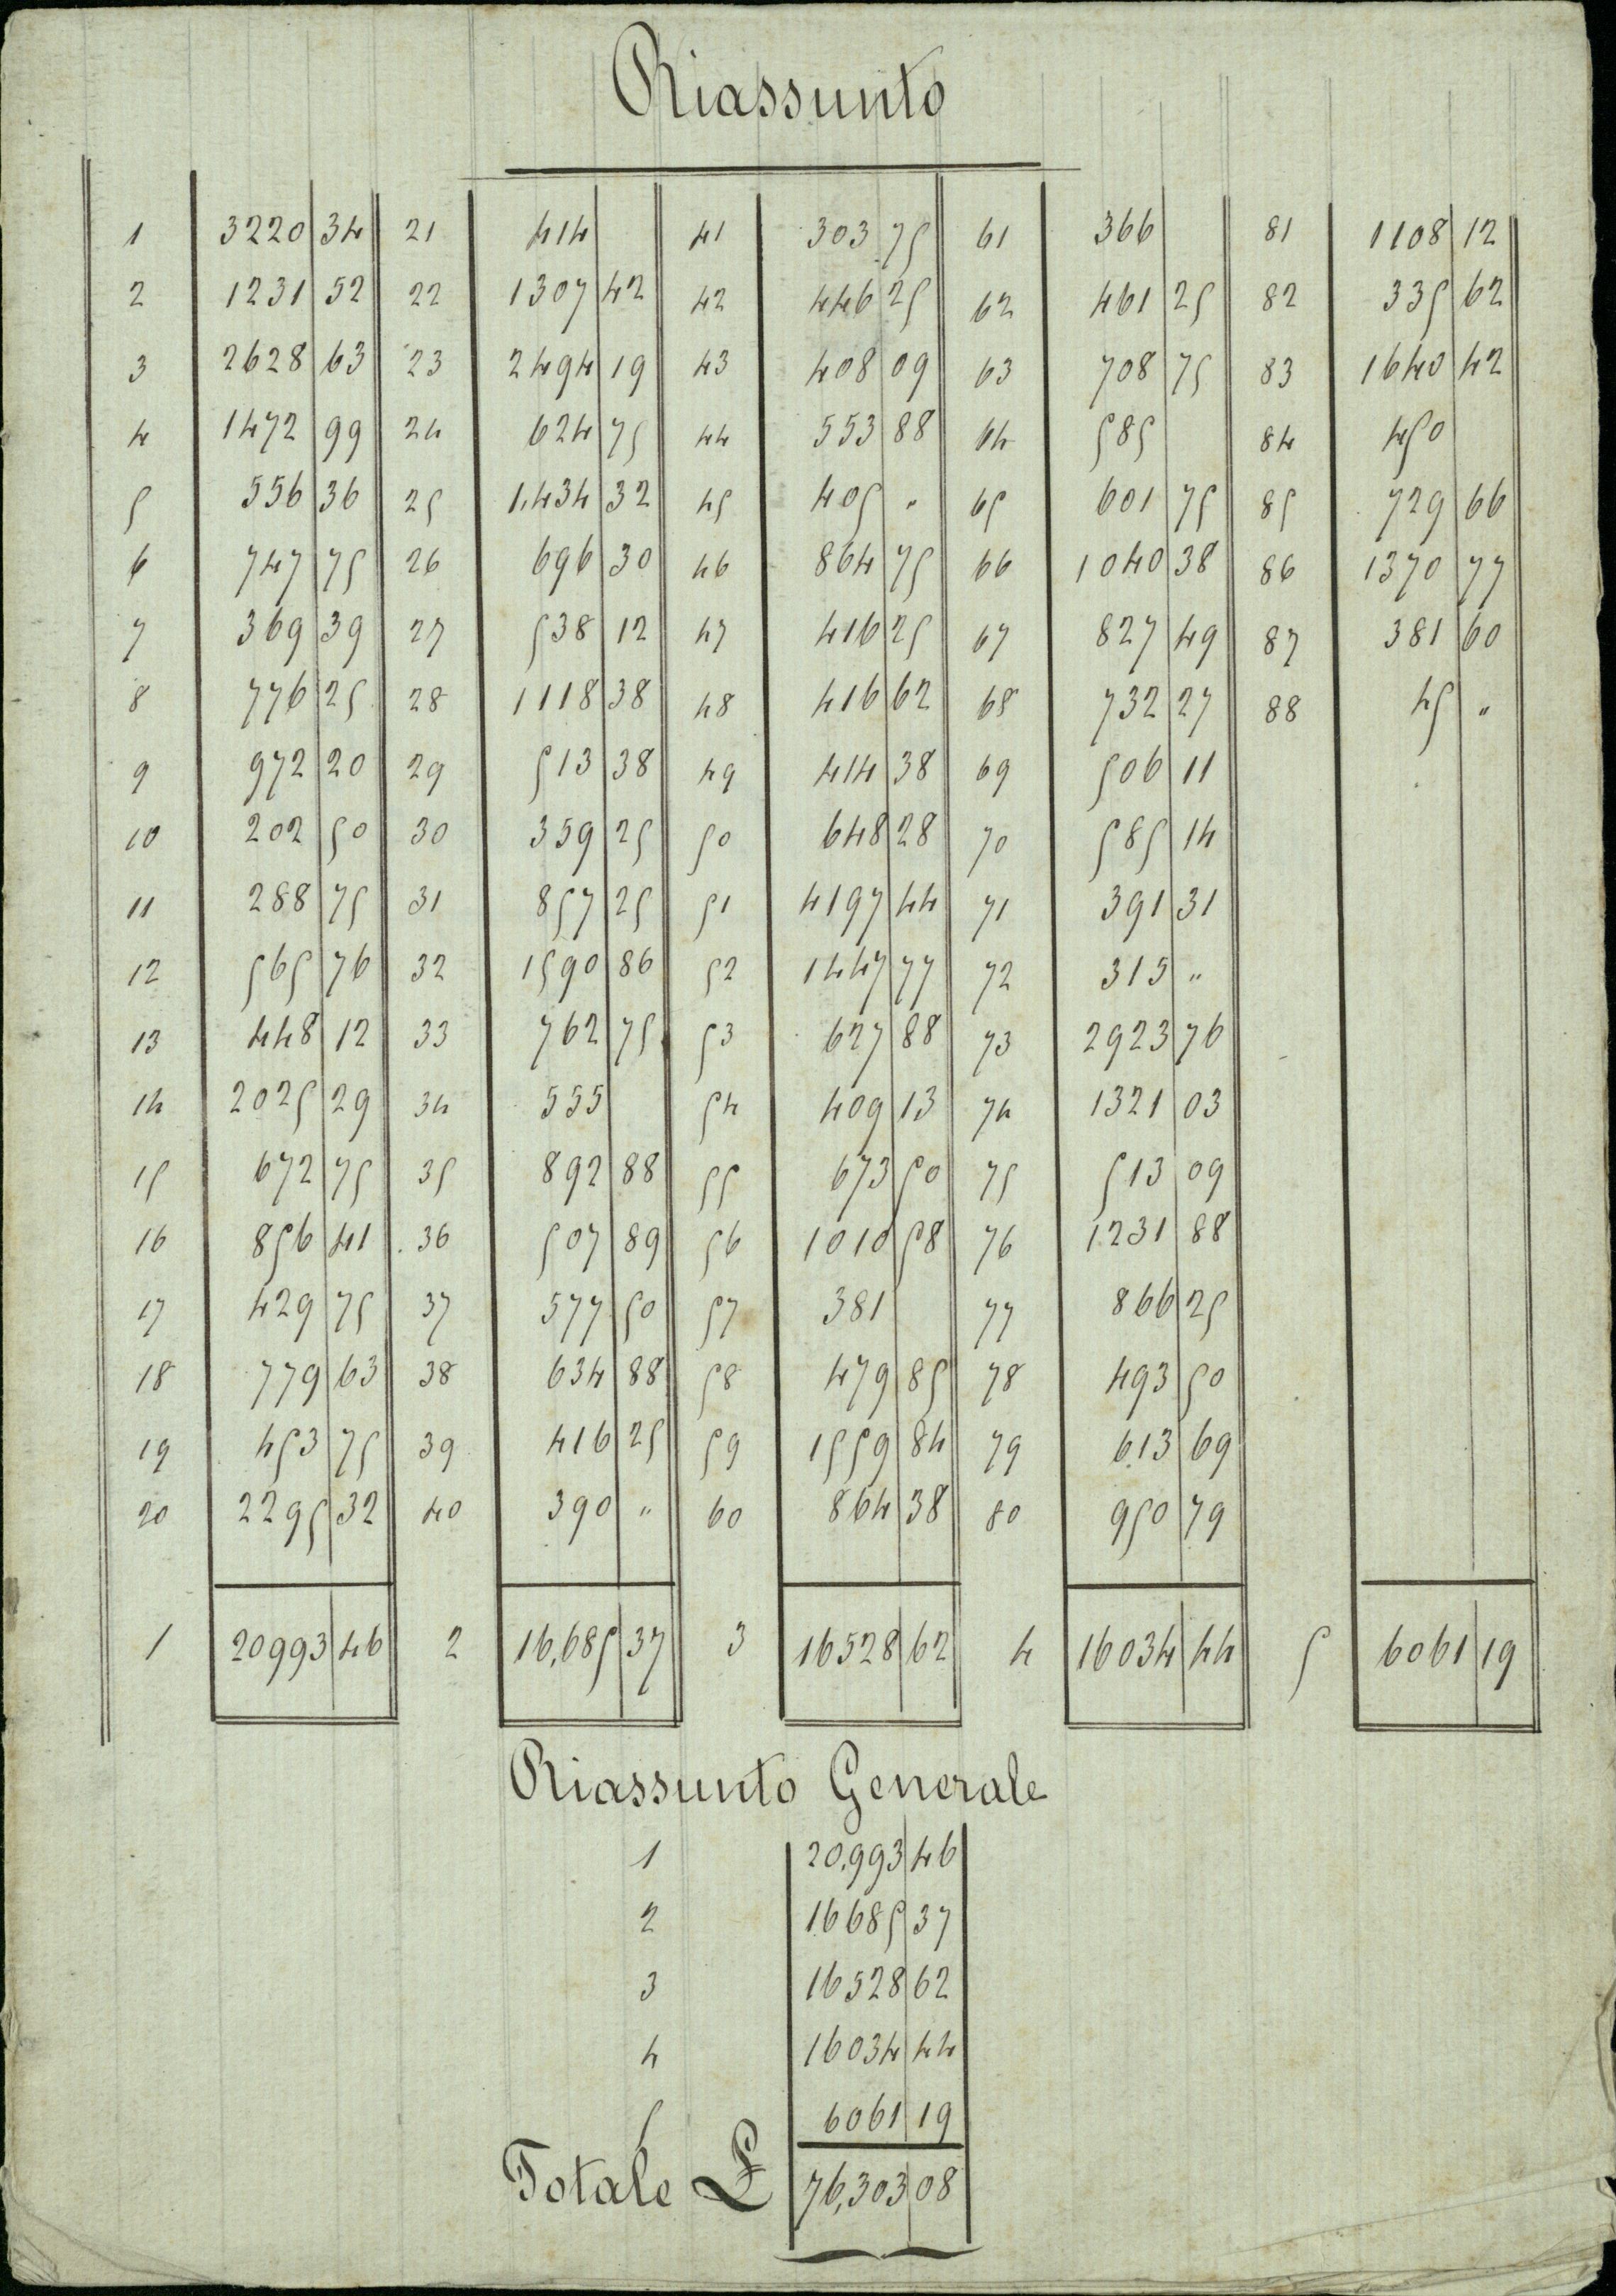 Riassunto
1 3220 34 21 414 41 303 75 61 366 81 1108 12
2 1231 52 22 1307 42 42 446 25 62 461 25 82 335 62
3 2628 63 23 2494 19 43 408 09 63 708 75 83 1640 42
4 1472 99 24 624 75 44 553 88 64 585 84 450
5 556 36 25 1,434 32 45 405 " 65 601 75 85 729 66
6 747 75 26 696 30 46 864 75 66 1040 38 86 1370 77
7 369 39 27 538 12 47 416 25 67 827 49 87 381 60
8 776 25 28 1118 38 48 416 62 68 732 27 88 45 "
9 972 20 29 513 38 49 414 38 69 506 11
10 202 50 30 359 25 50 648 28 70 585 14
11 288 75 31 857 25 51 4197 44 71 391 31
12 565 76 32 1590 86 52 1447 77 72 315 "
13 448 12 33 762 75 53 627 88 73 2923 76
14 2025 29 34 555 54 409 13 74 1321 03
15 672 75 35 892 88 55 673 50 75 513 09
16 856 41 36 507 89 56 1010 58 76 1231 88
17 429 75 37 577 50 57 381 77 866 25
18 779 63 38 634 88 58 479 85 78 493 50
19 453 75 39 416 25 59 1559 84 79 613 69
20 2295 32 40 390 " 60 864 38 80 950 79
1 20993 46 2 16,685 37 3 16528 62 4 16034 44 5 6061 19
Riassunto Generale
1 20,993 46
2 16685 37
3 16528 62
4 16034 44
5 6061 19
Totale £ 76,303 08